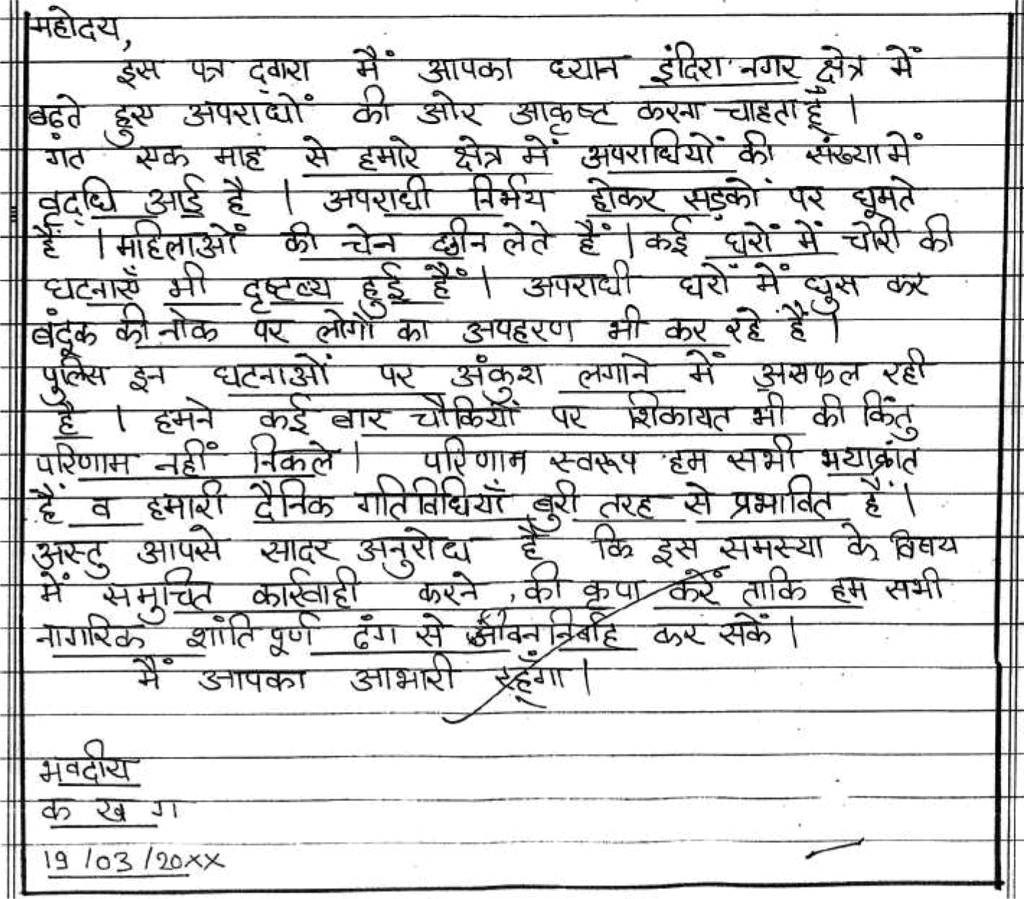 महोदय,
इस पत्र द्वारा मैं आपका ध्यान इंदिरा नगर क्षेत्र में
बढ़ते हुए अपराधों की ओर आकृष्ट करना चाहता हूँ ।
गत एक माह से हमारे क्षेत्र में अपराधियों की संख्या में
वृद्धि आई है । अपराधी निर्भय होकर सड़कों पर घूमते
हैं । महिलाओं की चेन छीन लेते हैं । कई घरों में चोरी की
घटनाएँ भी दृष्टव्य हुई हैं । अपराधी घरों में घुस कर
बंदूक की नोक पर लोगों का अपहरण भी कर रहे हैं ।
पुलिस इन घटनाओं पर अंकुश लगाने में असफल रही
है । हमने कई बार चौकियों पर शिकायत भी की किंतु
परिणाम नहीं निकले । परिणाम स्वरूप हम सभी भयाक्रांत
हैं व हमारी दैनिक गतिविधियाँ बुरी तरह से प्रभावित हैं ।
अस्तु आपसे सादर अनुरोध है कि इस समस्या के विषय
में समुचित कार्रवाही करने की कृपा करें ताकि हम सभी
नागरिक शांतिपूर्ण ढंग से जीवन निर्बाह कर सकें ।
मैं आपका आभारी रहूँगा ।
भवदीय
क ख ग
19/03/20XX